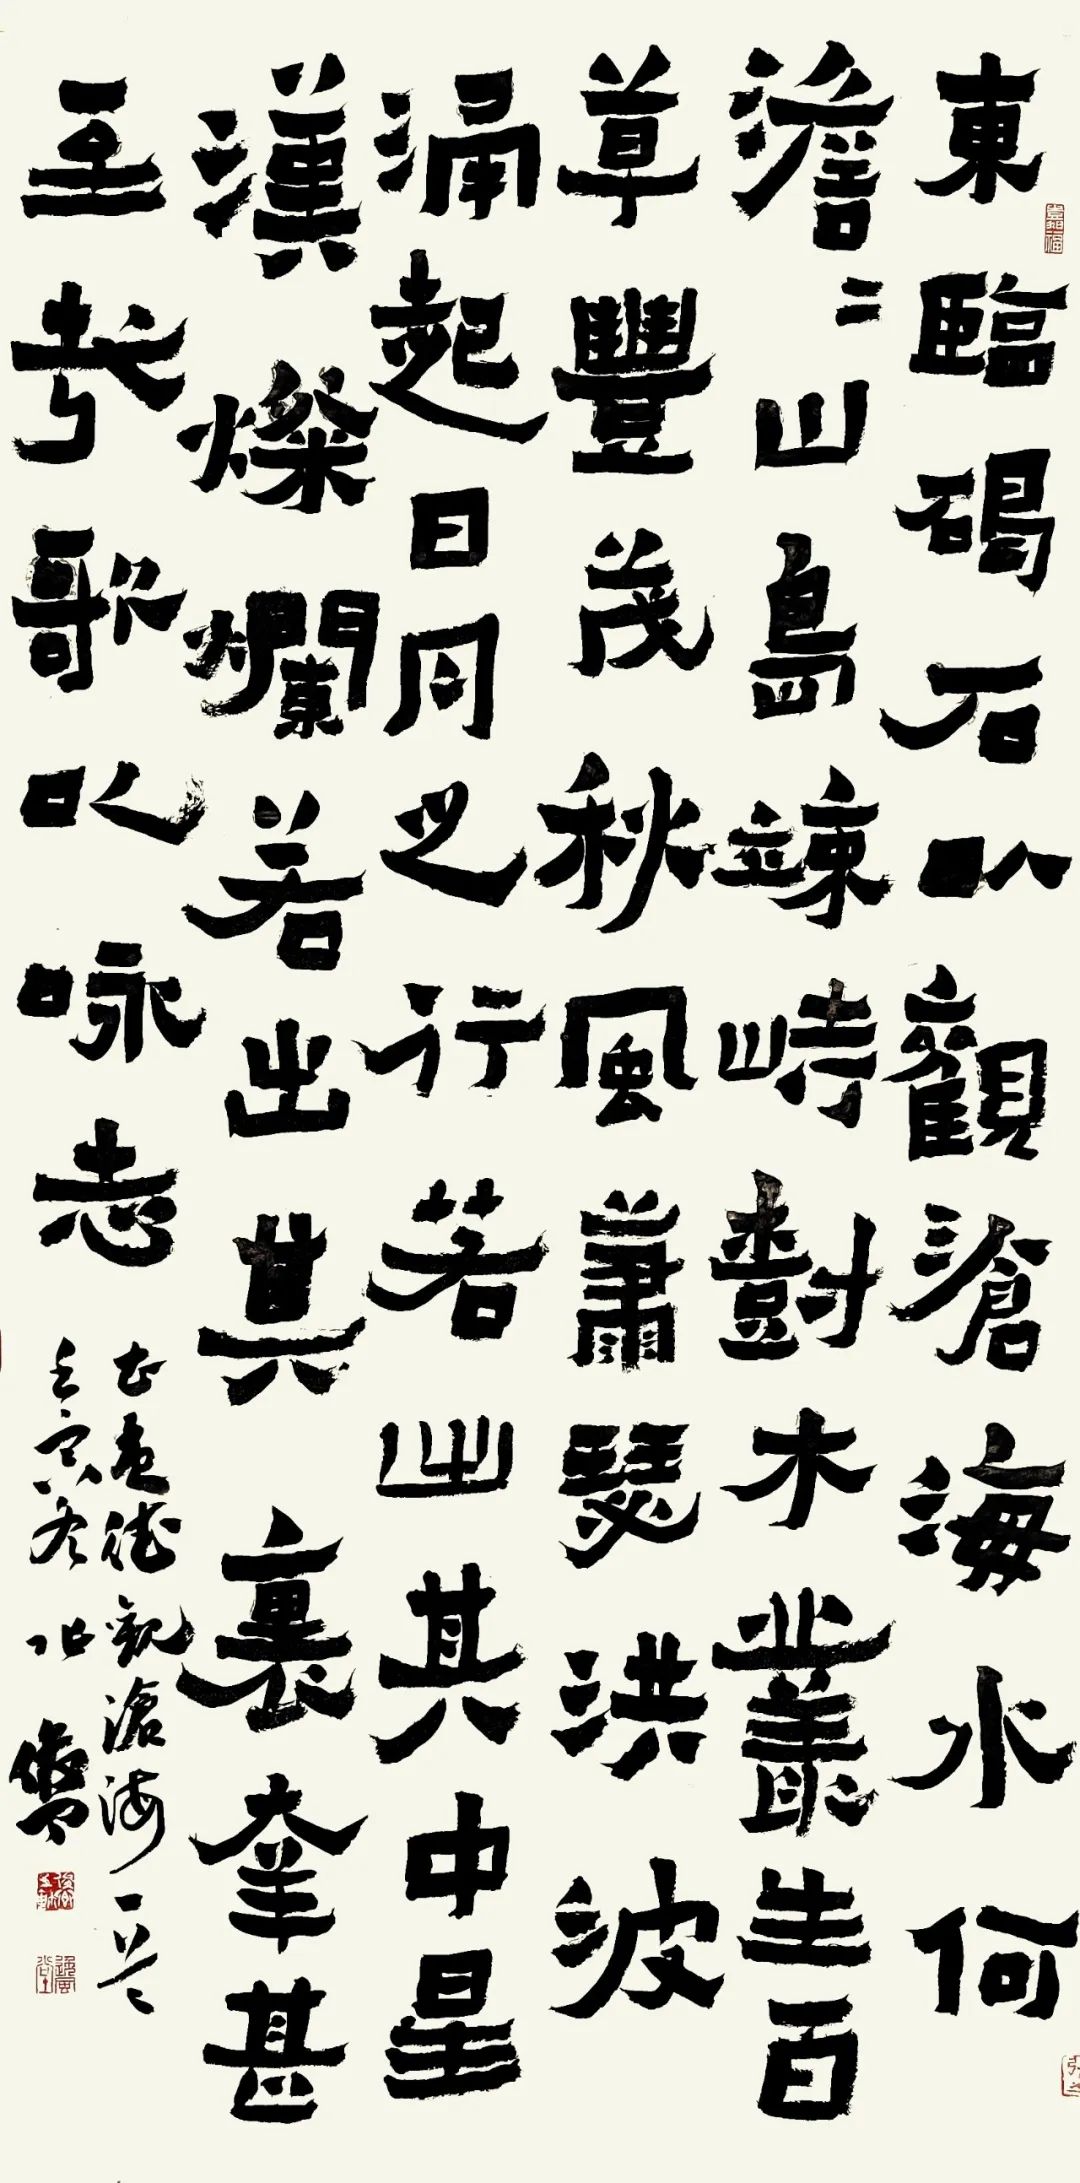 東臨碣石以觀滄海水何
澹〻山島竦峙樹木叢生百
草豐茂秋風蕭瑟洪波
涌起日月之行若出其中星
漢燦爛若出其裏幸甚
至哉歌以咏志
孟德觀滄海一首
壬寅冬